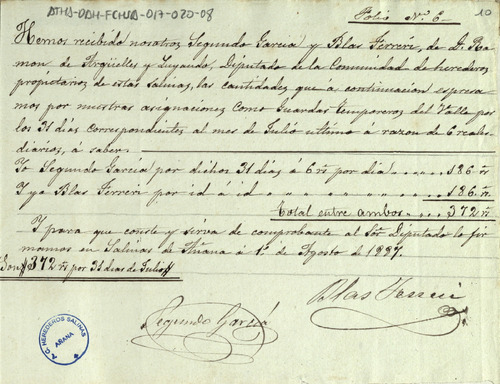 ATHA-DAH-FCHSA-017-020-08
Folio N.º 6. 10
Hemos recibido nosotros Segundo Garcia y Blas Ferreri, de D. Ra-
mon de Argüelles y Diputado de la Comunidad de herederos
propietarios de estas Salinas, las cantidades que a continuacion espresa-
mos por nuestras asignaciones como Guardas temporeros del Valle por
los 31 dias correspondientes al mes de Julio ultimo a razon de 6 reales
diarios, á saber.
Yo Segundo Garcia por dichos 31 dias á 6 rs por dia 186 rs
Y yo Blas Ferreri por id á id 186 rs
Total entre ambos 372 rs
Y para que conste y sirva de comprobante al Sor Diputado lo fir-
mamos en Salinas de Añana á 1º de Agosto de 1887.
Son 372 rs por 31 dias de Julio
Segundo Garcia
Blas Ferreri
T.C. HEREDEROS SALINAS
AÑANA